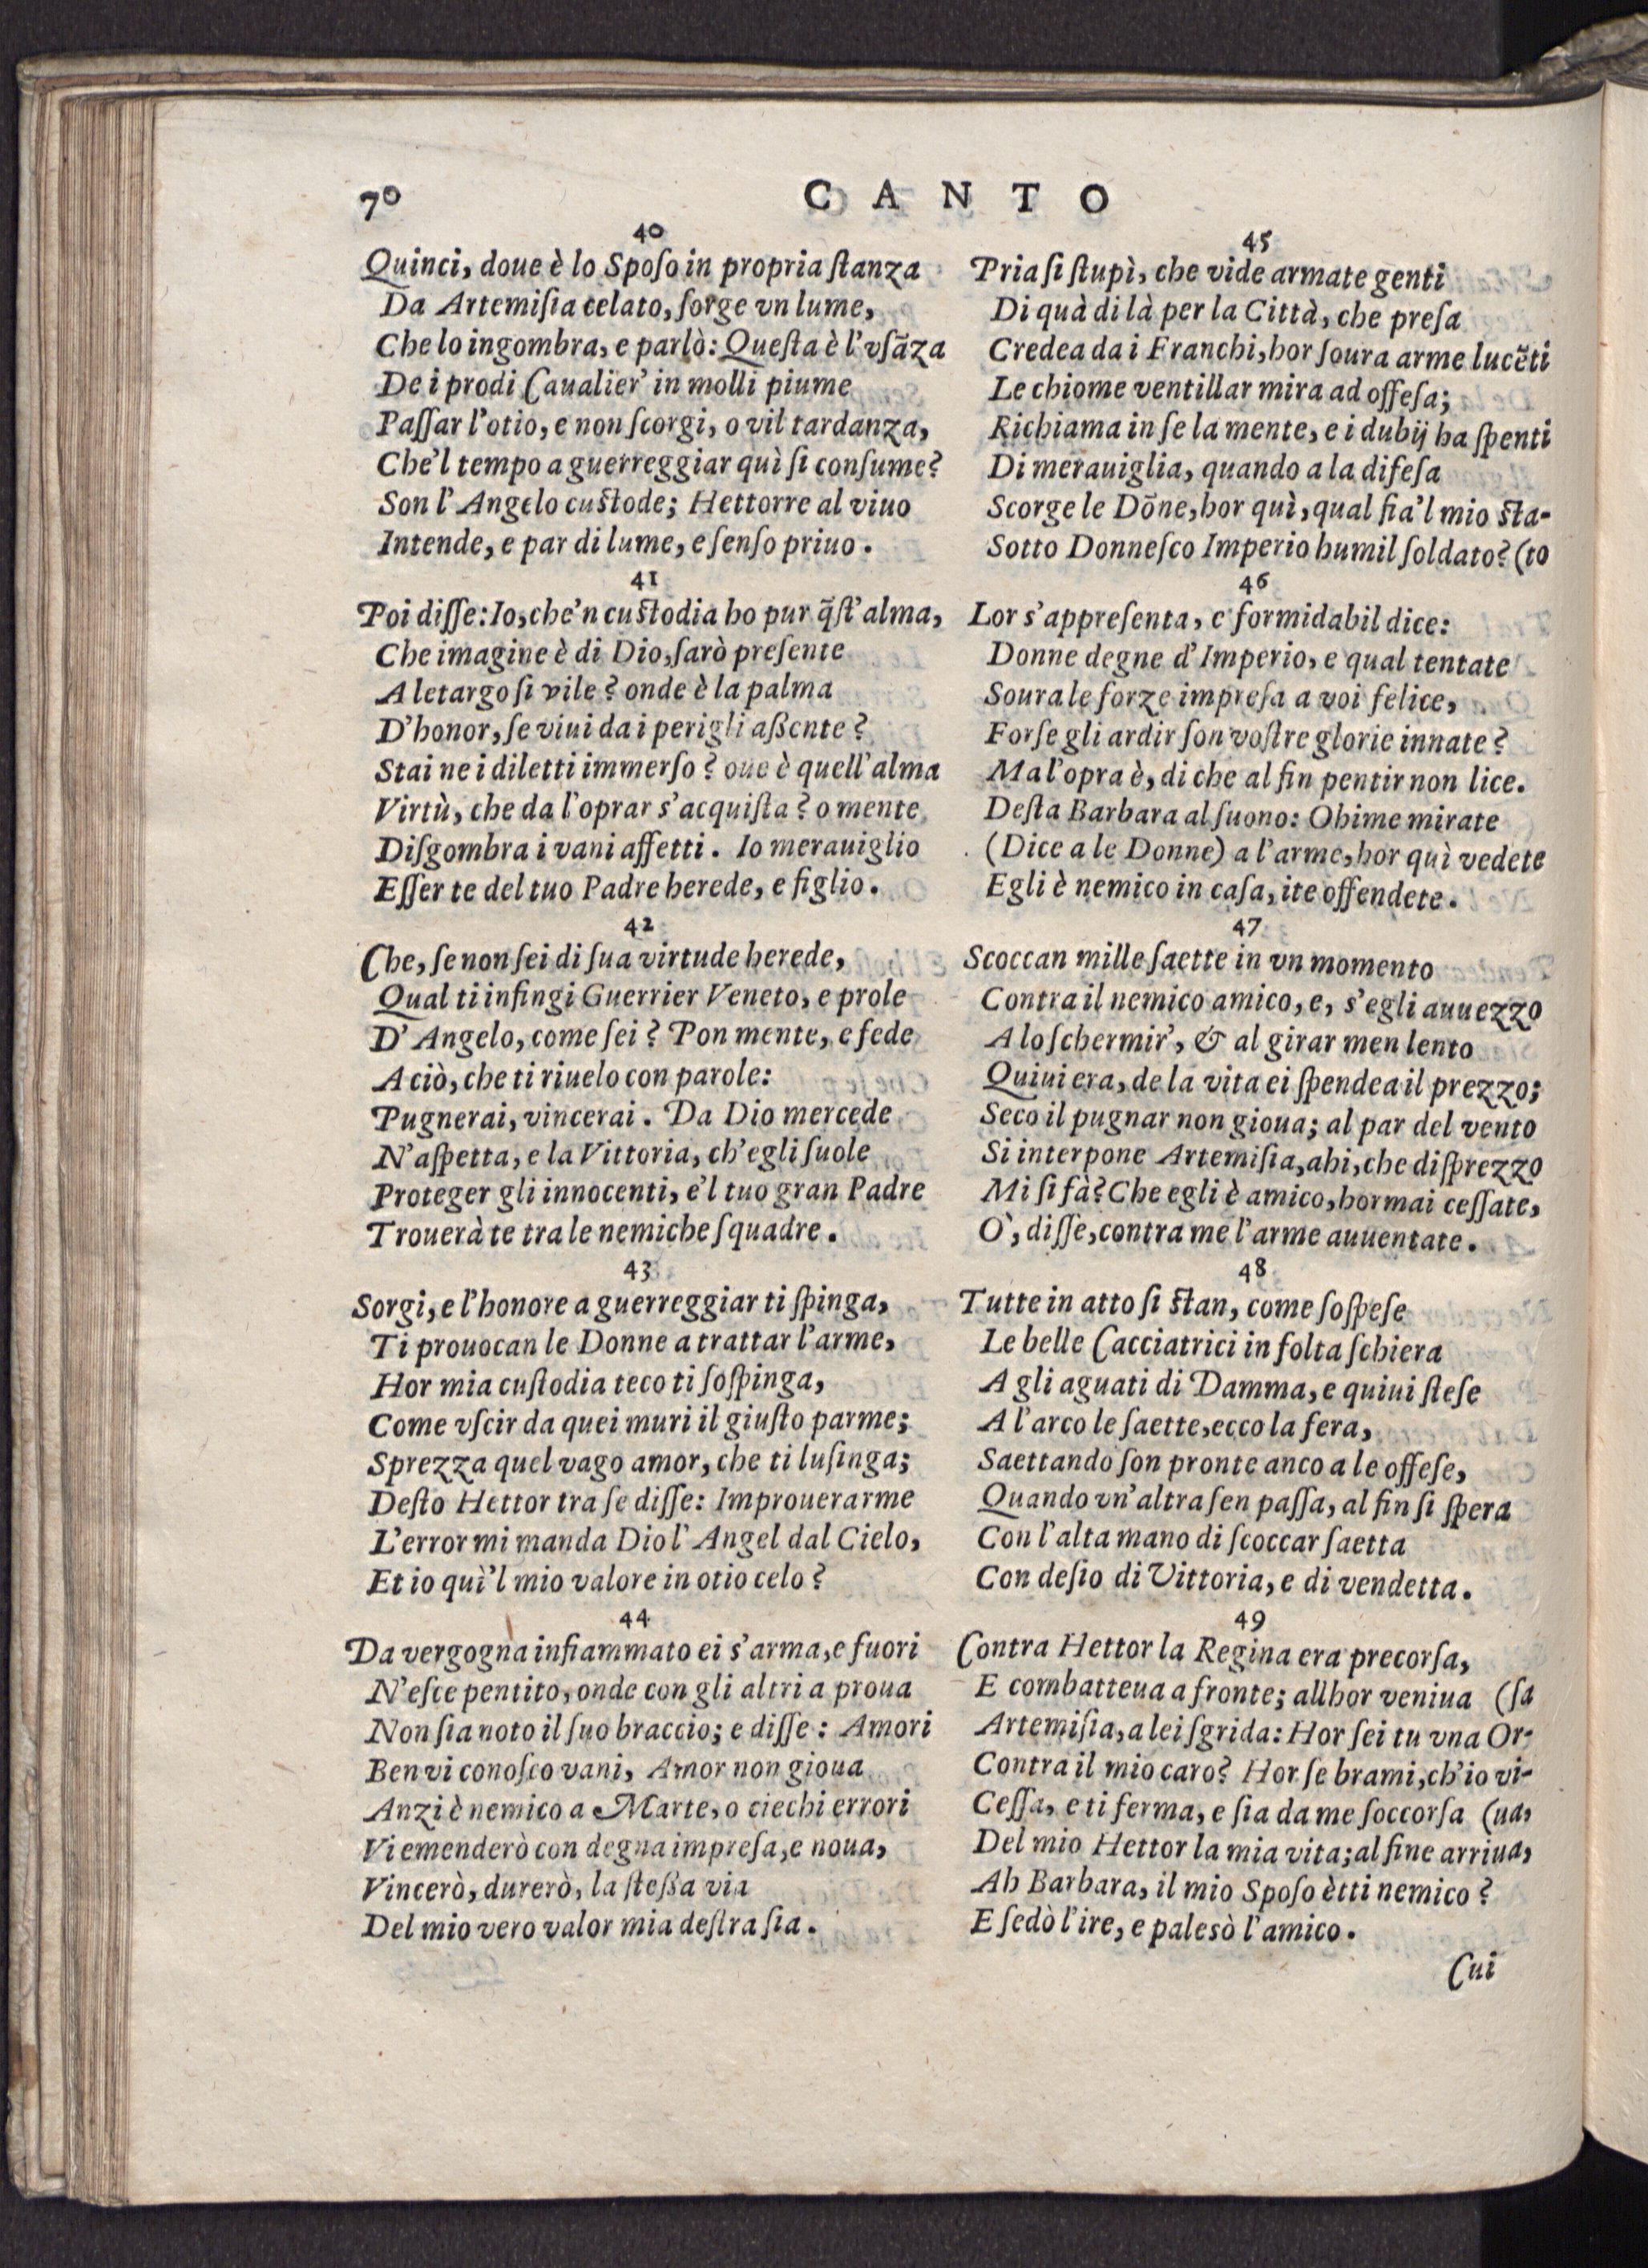 70
CANTO
40
Quinci, doue è lo Spoſo in propria ſtanza
Da Artemiſia celato, ſorge vn lume,
Che lo ingombra, e parlò: Queſta è l'vsāza
De i prodi Caualier' in molli piume
Paſſar l'otio, e non ſcorgi, o vil tardanza,
Che'l tempo a guerreggiar quì ſi conſume?
Son l'Angelo cuſtode; Hettorre al viuo
Intende, e par di lume, e ſenſo priuo.
41
Poi diſſe: Io, che'n cuſtodia ho pur q̃ſt'alma,
Che imagine è di Dio, ſarò preſente
A letargo ſi vile? onde è la palma
D'honor, ſe viui da i perigli aßente?
Stai ne i diletti immerſo? oue è quell'alma
Virtù, che da l'oprar s'acquiſta? o mente
Diſgombra i vani affetti. Io merauiglio
Eſſer te del tuo Padre herede, e figlio.
42
Che, ſe non ſei di ſua virtude herede,
Qual ti infingi Guerrier Veneto, e prole
D'Angelo, come ſei? Pon mente, e fede
A ciò, che ti riuelo con parole:
Pugnerai, vincerai. Da Dio mercede
N'aſpetta, e la Vittoria, ch'egli ſuole
Proteger gli innocenti, e'l tuo gran Padre
Trouerà te tra le nemiche ſquadre.
43
Sorgi, e l'honore a guerreggiar ti ſpinga,
Ti prouocan le Donne a trattar l'arme,
Hor mia cuſtodia teco ti ſoſpinga,
Come vſcir da quei muri il giuſto parme;
Sprezza quel vago amor, che ti luſinga;
Deſto Hettor tra ſe diſſe: Improuerarme
L'error mi manda Dio l'Angel dal Cielo,
Et io quì'l mio valore in otio celo?
44
Da vergogna infiammato ei s'arma, e fuori
N'eſce pentito, onde con gli altri a proua
Non ſia noto il ſuo braccio; e diſſe: Amori
Ben vi conoſco vani, Amor non gioua
Anzi è nemico a Marte, o ciechi errori
Vi emenderò con degna impreſa, e noua,
Vincerò, durerò, la ſteßa via
Del mio vero valor mia deſtra ſia.
45
Pria ſi ſtupì, che vide armate genti
Di quà di là per la Città, che preſa
Credea da i Franchi, hor ſoura arme lucẽti
Le chiome ventillar mira ad offeſa;
Richiama in ſe la mente, e i dubij ha ſpenti
Di merauiglia, quando a la difeſa
Scorge le Dōne, hor quì, qual fia'l mio ſta-
Sotto Donneſco Imperio humil ſoldato? (to
46
Lor s'appreſenta, e formidabil dice:
Donne degne d'Imperio, e qual tentate
Soura le forze impreſa a voi felice,
Forſe gli ardir ſon voſtre glorie innate?
Ma l'opra è, di che al fin pentir non lice.
Deſta Barbara al ſuono: Ohime mirate
(Dice a le Donne) a l'arme, hor quì vedete
Egli è nemico in caſa, ite offendete.
47
Scoccan mille ſaette in vn momento
Contra il nemico amico, e, s'egli auuezzo
A lo ſchermir', & al girar men lento
Quiui era, de la vita ei ſpendea il prezzo;
Seco il pugnar non gioua; al par del vento
Si interpone Artemiſia, ahi, che diſprezzo
Mi ſi fà? Che egli è amico, hormai ceſſate,
O', diſſe, contra me l'arme auuentate.
48
Tutte in atto ſi ſtan, come ſoſpeſe
Le belle Cacciatrici in folta ſchiera
A gli aguati di Damma, e quiui ſteſe
A l'arco le ſaette, ecco la fera,
Saettando ſon pronte anco a le offeſe,
Quando vn'altra ſen paſſa, al fin ſi ſpera
Con l'alta mano di ſcoccar ſaetta
Con deſio di Vittoria, e di vendetta.
49
Contra Hettor la Regina era precorſa,
E combatteua a fronte; allhor veniua (ſa
Artemiſia, a lei ſgrida: Hor ſei tu vna Or-
Contra il mio caro? Hor ſe brami, ch'io vi-
Ceſſa, e ti ferma, e ſia da me ſoccorſa (ua,
Del mio Hettor la mia vita; al fine arriua,
Ah Barbara, il mio Spoſo ètti nemico?
E ſedò l'ire, e palesò l'amico.
Cui